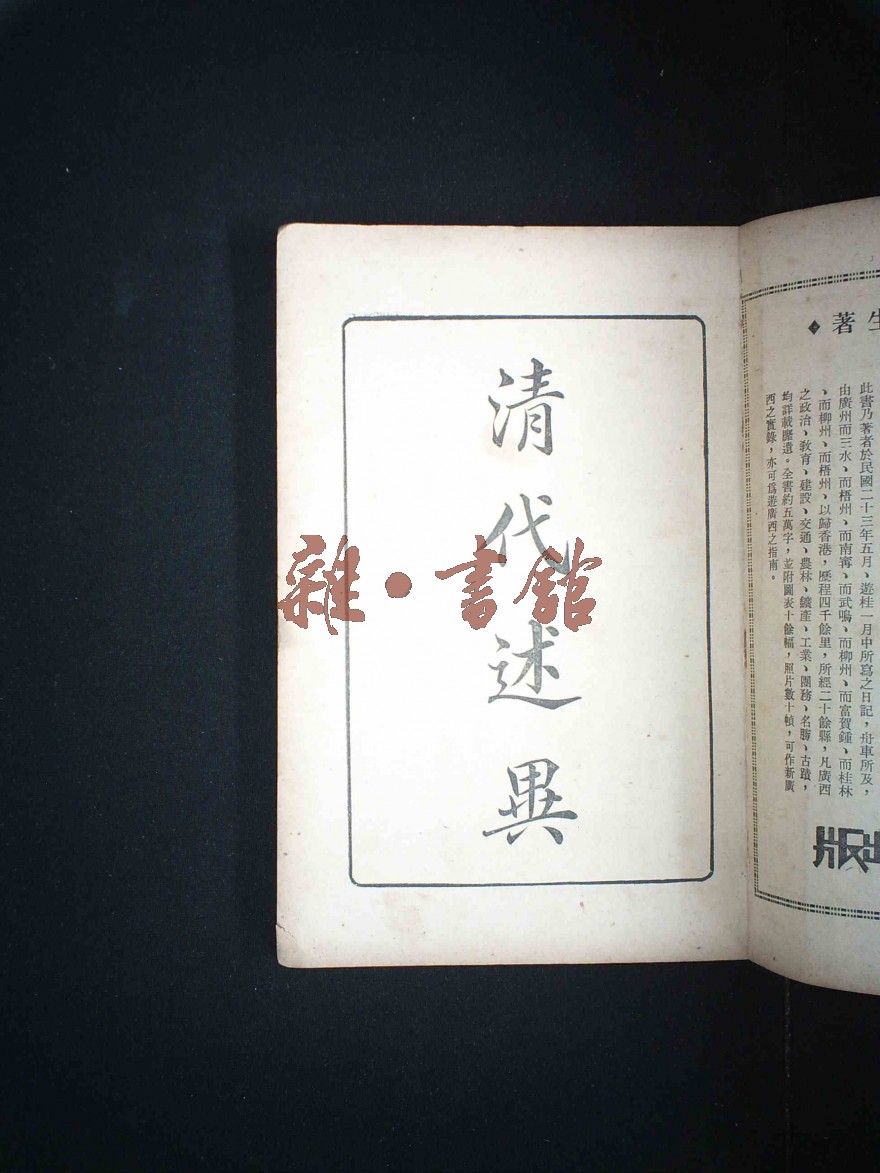 生著◆
此書乃著者於民國二十三年五月、遊桂一月中所寫之日記，舟車所及，
由廣州而三水、而梧州、而南寧、而武鳴、而柳州、而富賀鍾、而桂林
、而柳州、而梧州、以歸香港，歷程四千餘里，所經二十餘縣，凡廣西
之政治、教育、建設、交通、農林、鑛產、工業、團務、名勝、古蹟，
均詳載靡遺。全書約五萬字，並附圖表十餘幅，照片數十幀，可作新廣
西之實錄，亦可爲遊廣西之指南。
出版
清代述異
雜·書館